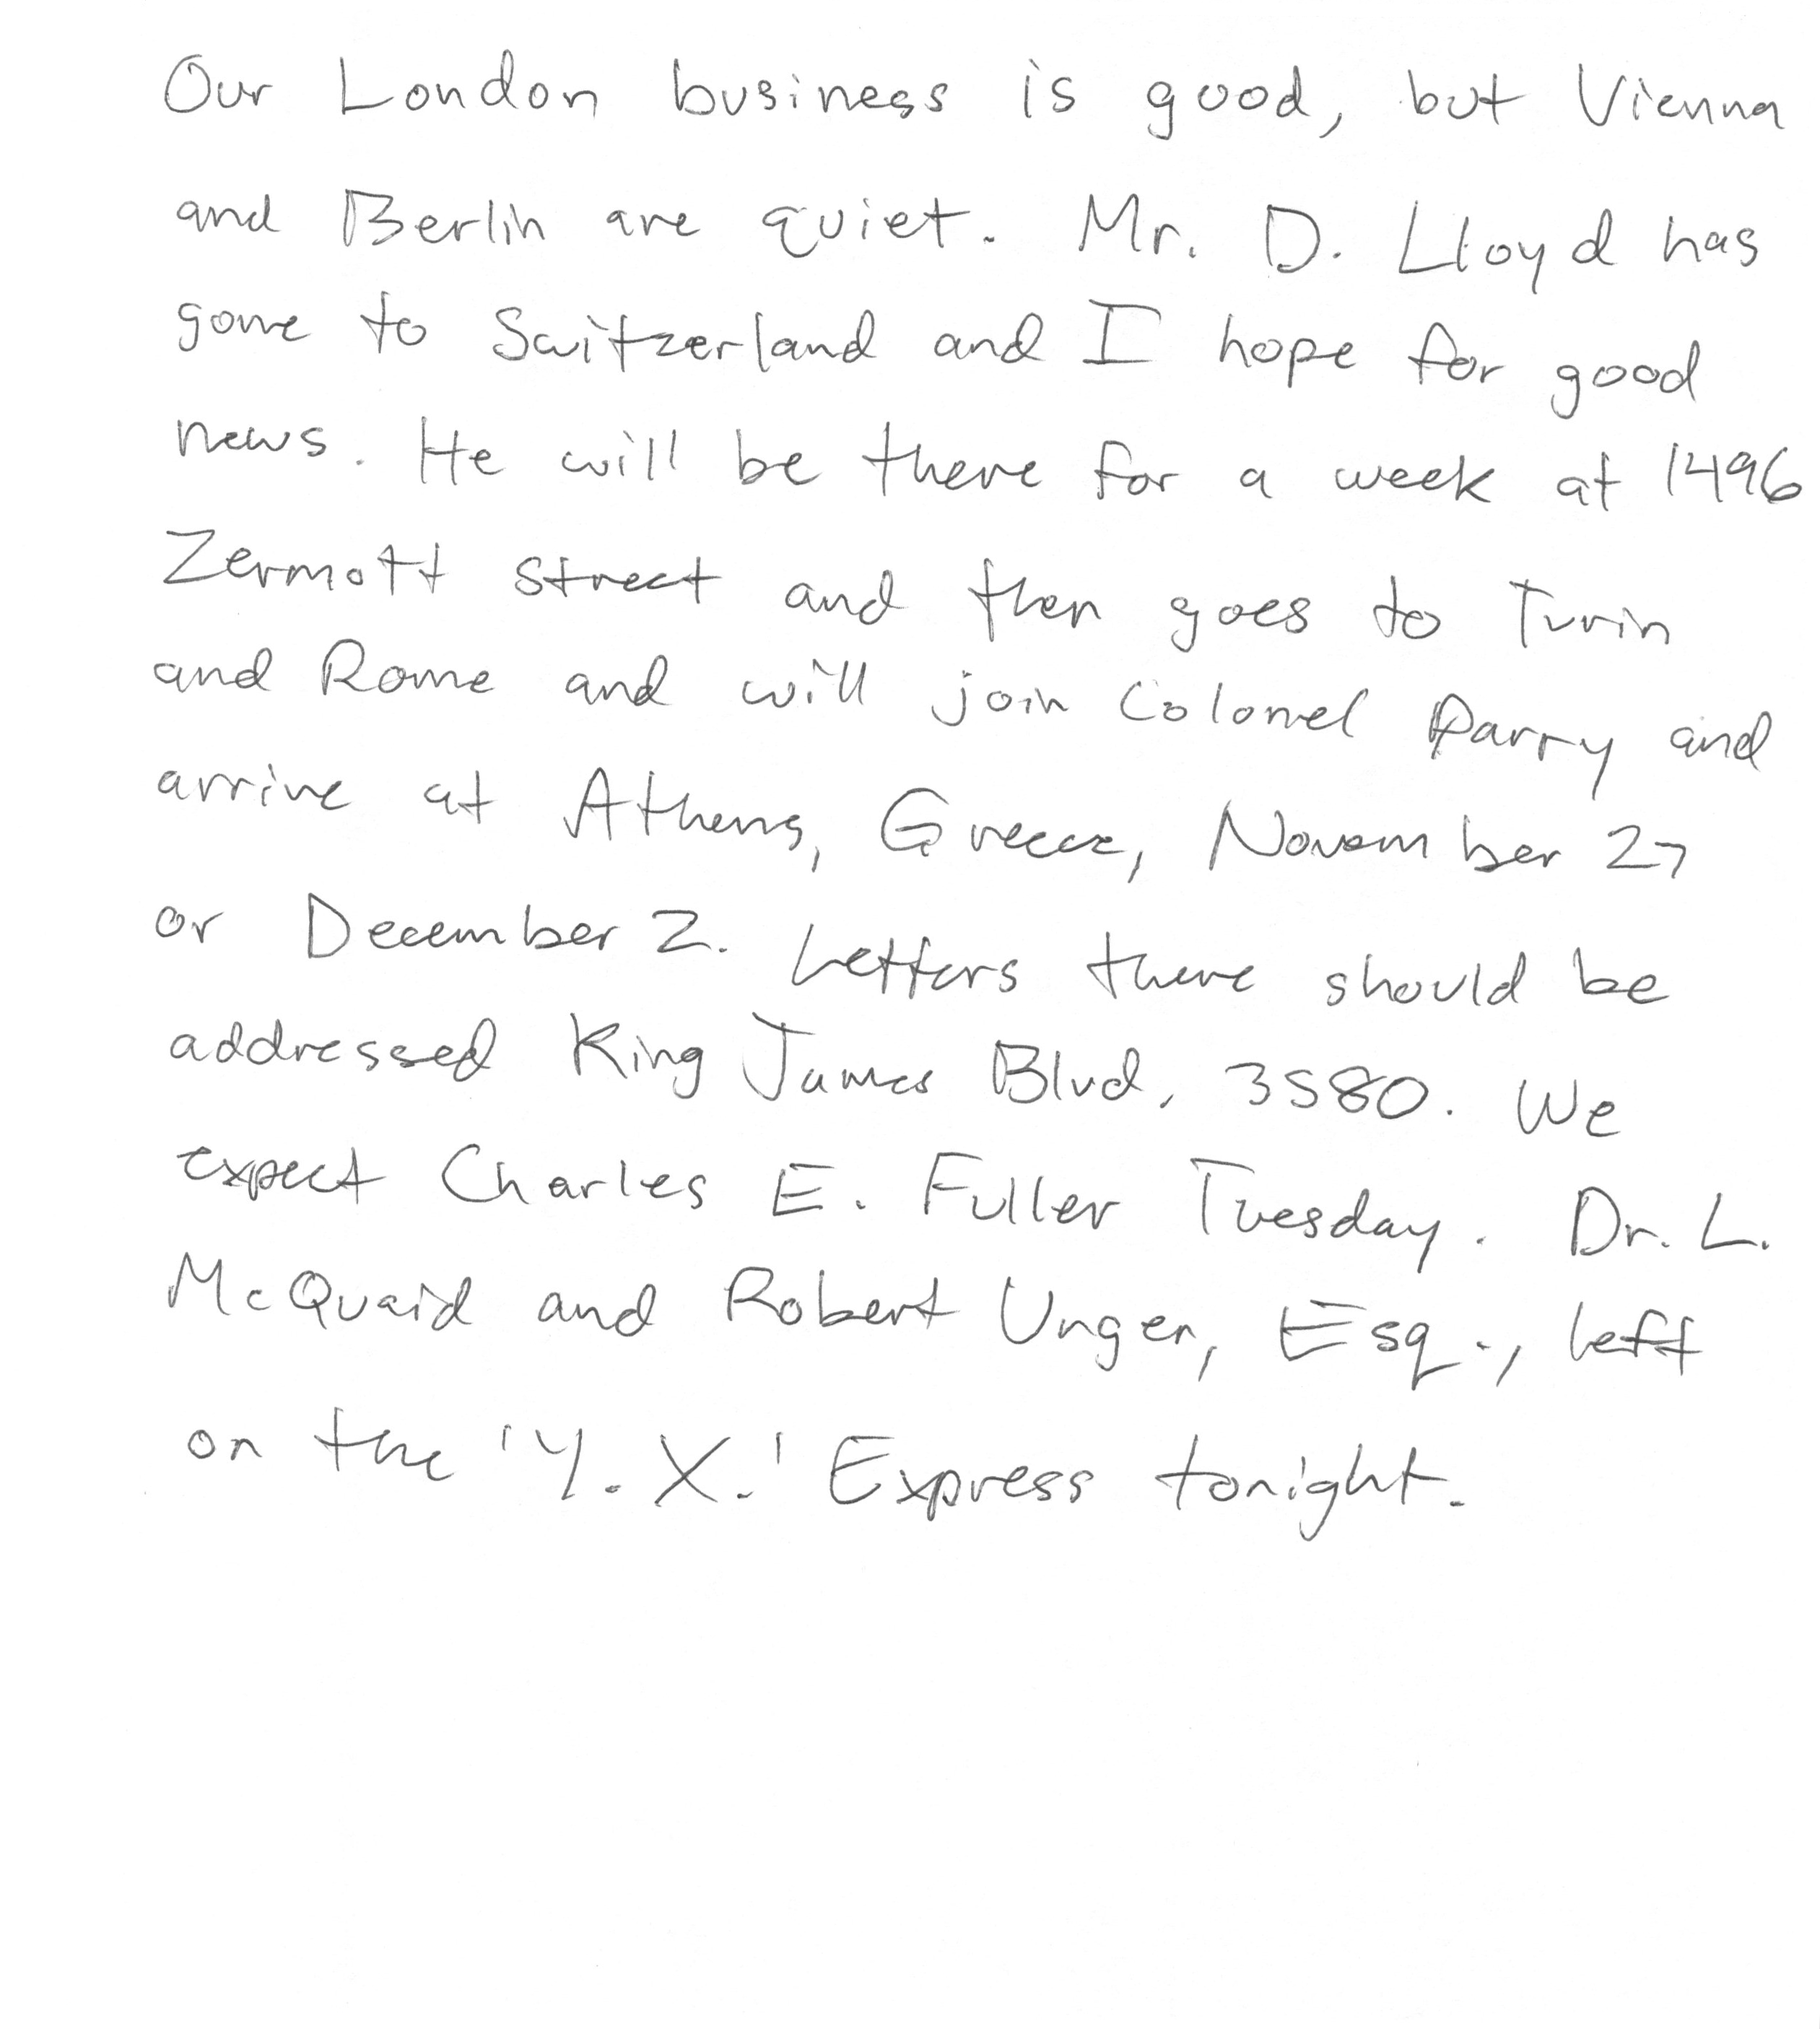 Our London business is good, but Vienna
and Berlin are quiet. Mr. D. Lloyd has
gone to Switzerland and I hope for good
news. He will be there for a week at 1496
Zermott street and then goes to Turin
and Rome and will join Colonel Parry and
arrive at Athens, Greece, November 27
or December 2. Letters there should be
addressed King James Blvd, 3580. We
expect Charles E. Fuller Tuesday. Dr. L.
McQuaid and Robert Unger, Esq., left
on the 'Y. X.' Express tonight.